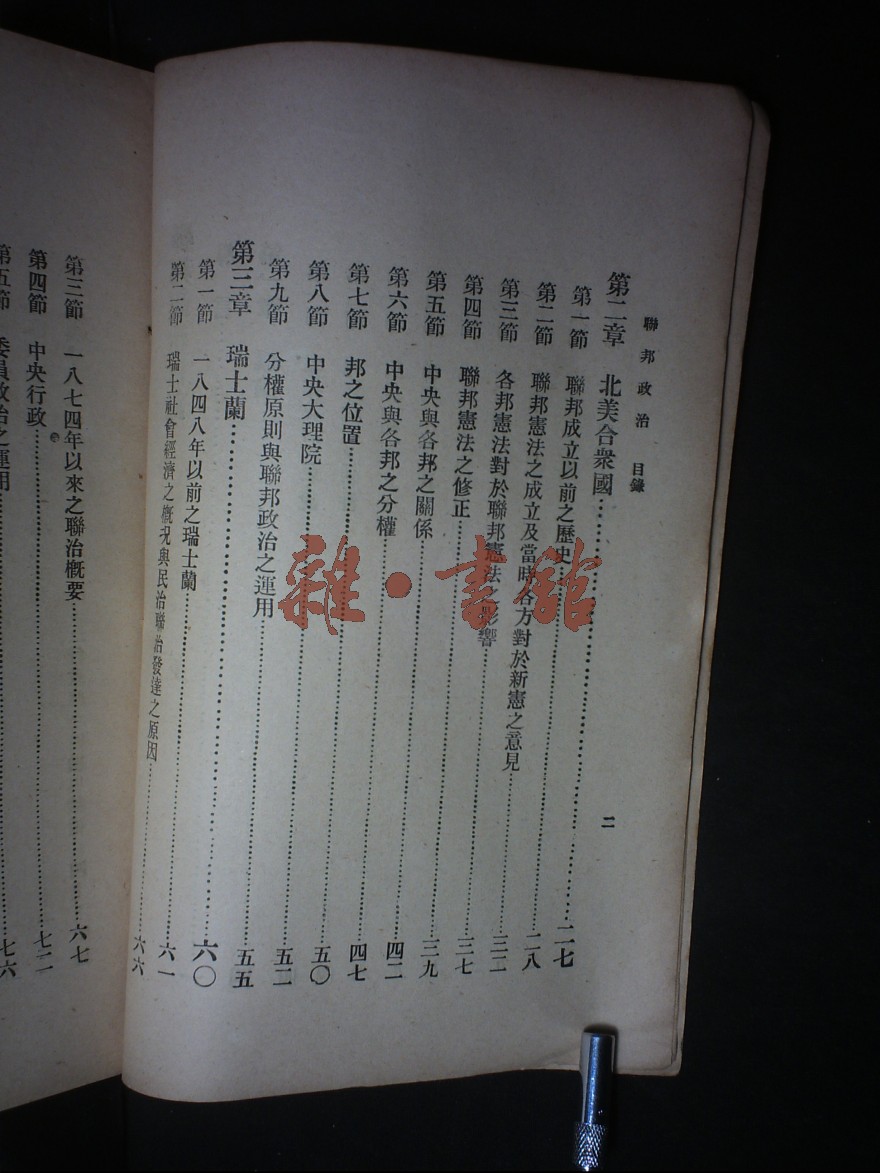 聯邦政治　目錄　二
第二章　北美合衆國……二七
第一節　聯邦成立以前之歷史……二八
第二節　聯邦憲法之成立及當時各方對於新憲之意見……三二
第三節　各邦憲法對於聯邦憲法之影響……三七
第四節　聯邦憲法之修正……三九
第五節　中央與各邦之關係……四二
第六節　中央與各邦之分權……四七
第七節　邦之位置……五〇
第八節　中央大理院……五二
第九節　分權原則與聯邦政治之運用……五五
第三章　瑞士蘭……六〇
第一節　一八四八年以前之瑞士蘭……六一
第二節　瑞士社會經濟之概況與民治聯治發達之原因……六六
第三節　一八七四年以來之聯治概要……六七
第四節　中央行政……七二
第五節　委員政治之運用……七六
雜·書館